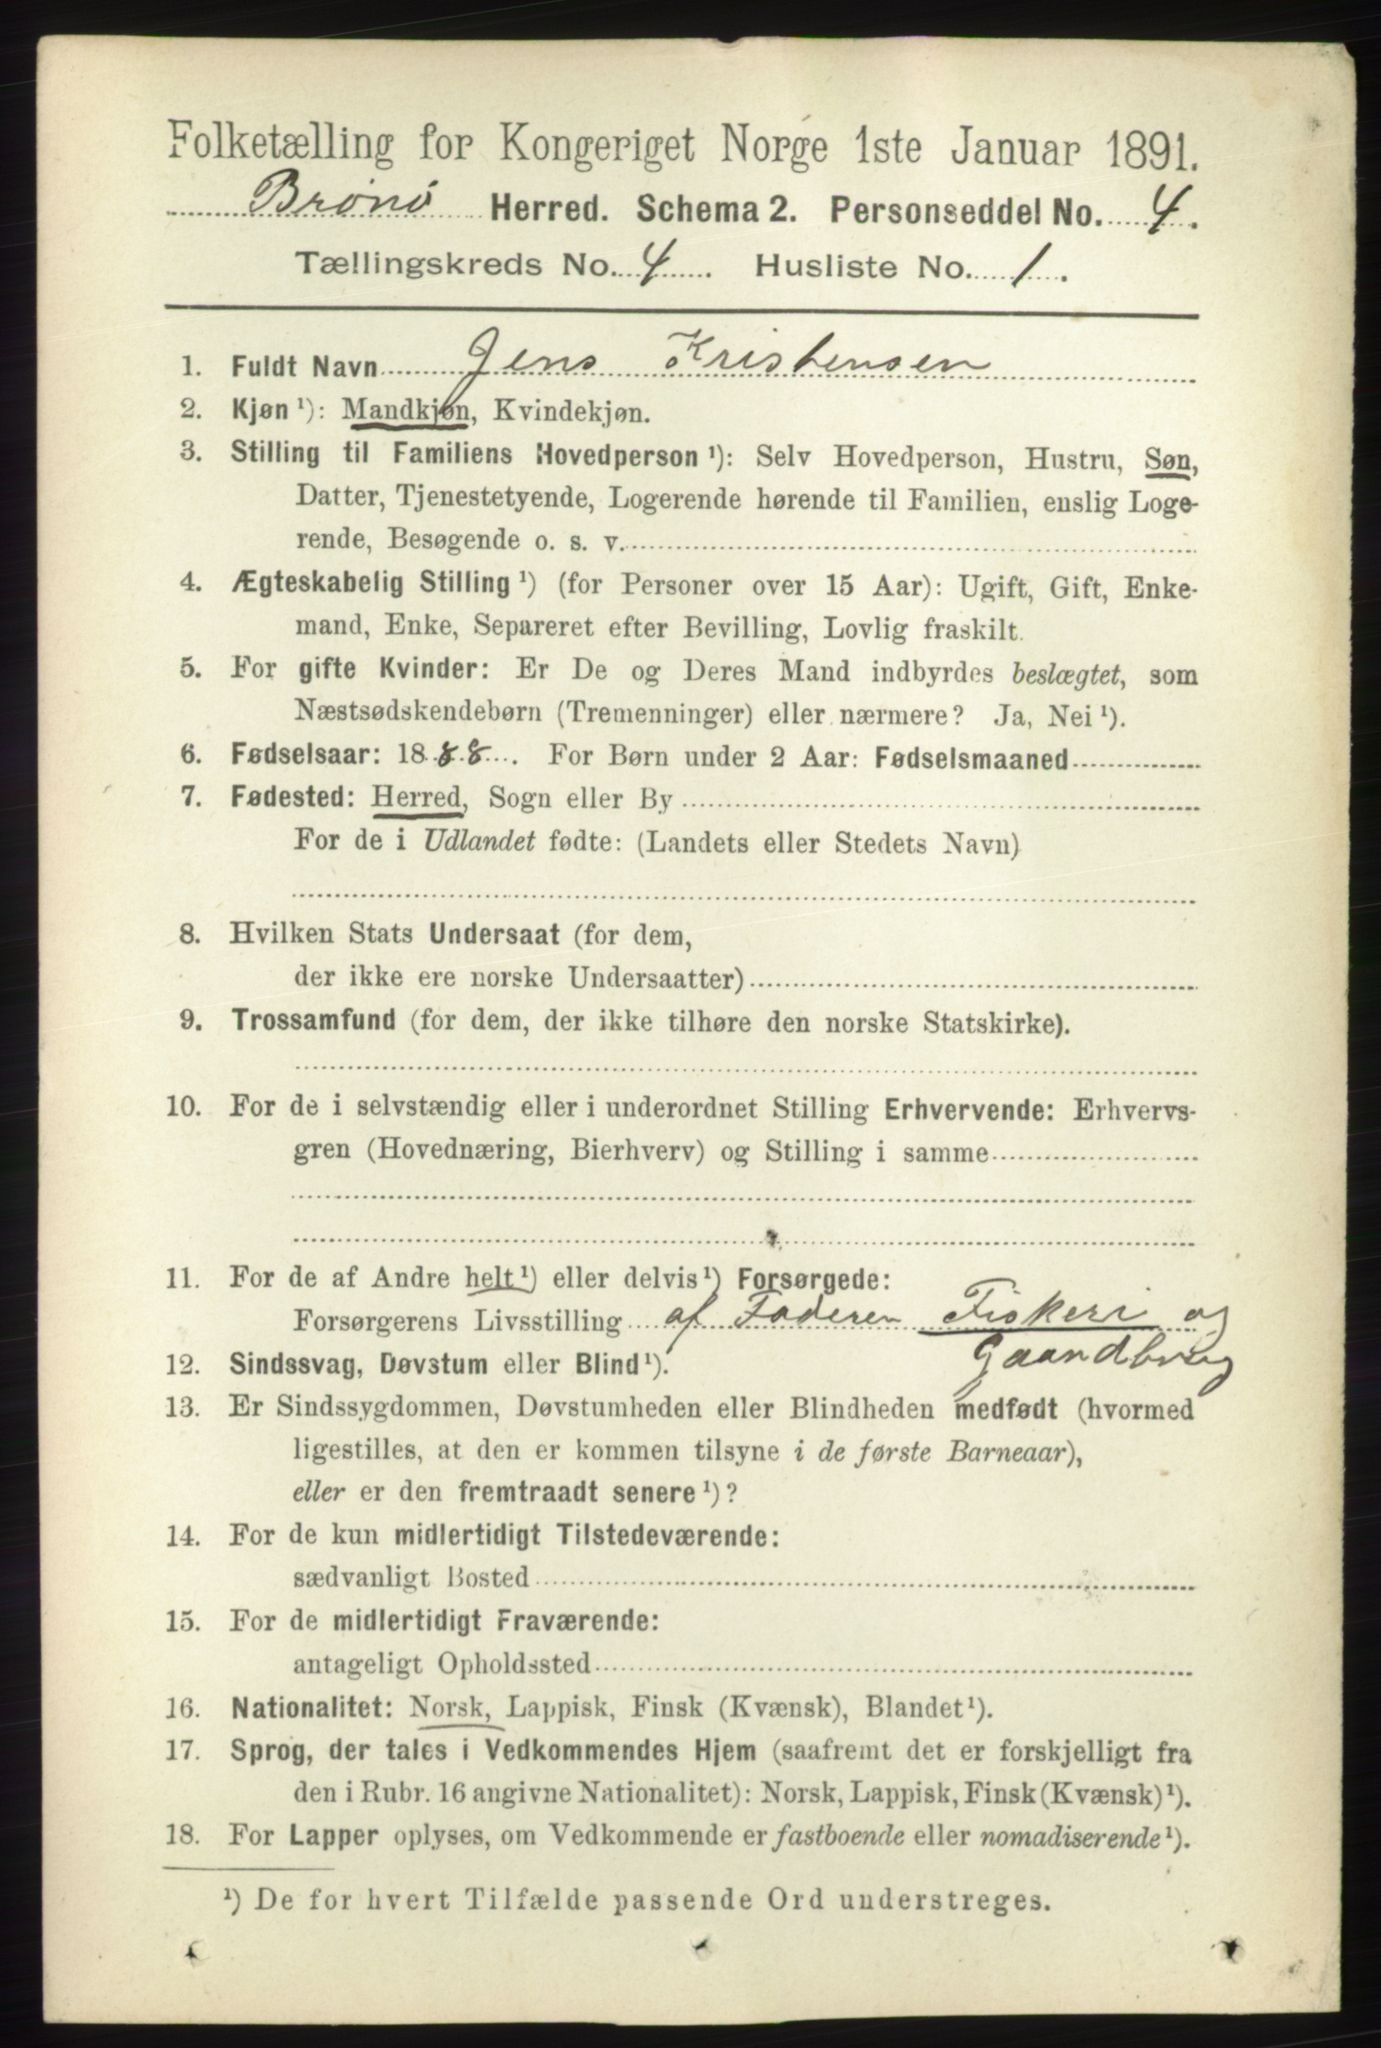 Folketælling for Kongeriget Norge 1ste Januar 1891.
Brønø Herred. Schema 2. Personseddel No. 4.
Tællingskreds No. 4. Husliste No. 1.
1. Fuldt Navn Jens Kristensen
2. Kjøn ¹): Mandkjøn, Kvindekjøn.
3. Stilling til Familiens Hovedperson ¹): Selv Hovedperson, Hustru, Søn,
Datter, Tjenestetyende, Logerende hørende til Familien, enslig Loge-
rende, Besøgende o. s. v.
4. Ægteskabelig Stilling ¹) (for Personer over 15 Aar): Ugift, Gift, Enke-
mand, Enke, Separeret efter Bevilling, Lovlig fraskilt.
5. For gifte Kvinder: Er De og Deres Mand indbyrdes beslægtet, som
Næstsødskendebørn (Tremenninger) eller nærmere? Ja, Nei ¹).
6. Fødselsaar: 1888. For Børn under 2 Aar: Fødselsmaaned
7. Fødested: Herred, Sogn eller By
For de i Udlandet fødte: (Landets eller Stedets Navn)
8. Hvilken Stats Undersaat (for dem,
der ikke ere norske Undersaatter)
9. Trossamfund (for dem, der ikke tilhøre den norske Statskirke).
10. For de i selvstændig eller i underordnet Stilling Erhvervende: Erhvervs-
gren (Hovednæring, Bierhverv) og Stilling i samme
11. For de af Andre helt ¹) eller delvis ¹) Forsørgede:
Forsørgerens Livsstilling af Faderen Fiskeri og
Gaardbrug
12. Sindssvag, Døvstum eller Blind ¹).
13. Er Sindssygdommen, Døvstumheden eller Blindheden medfødt (hvormed
ligestilles, at den er kommen tilsyne i de første Barneaar),
eller er den fremtraadt senere ¹)?
14. For de kun midlertidigt Tilstedeværende:
sædvanligt Bosted
15. For de midlertidigt Fraværende:
antageligt Opholdssted
16. Nationalitet: Norsk, Lappisk, Finsk (Kvænsk), Blandet ¹).
17. Sprog, der tales i Vedkommendes Hjem (saafremt det er forskjelligt fra
den i Rubr. 16 angivne Nationalitet): Norsk, Lappisk, Finsk (Kvænsk) ¹).
18. For Lapper oplyses, om Vedkommende er fastboende eller nomadiserende ¹).
¹) De for hvert Tilfælde passende Ord understreges.